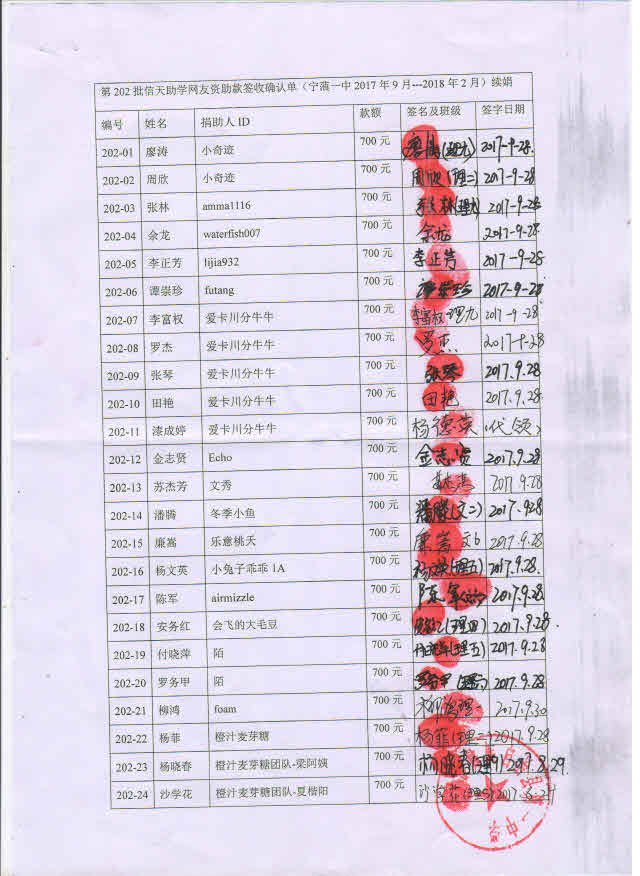 第 202 批信天助学网友资助款签收确认单（宁蒗一中 2017 年 9 月---2018 年 2 月）续娟
编号 姓名 捐助人 ID 款额 签名及班级 签字日期
202-01 廖涛 小奇迹 700 元 廖涛(理九) 2017-9-28.
202-02 周欣 小奇迹 700 元 周欣(理二) 2017-9-28
202-03 张林 amma1116 700 元 2017-9-28
202-04 余龙 waterfish007 700 元 余龙 2017-9-28
202-05 李正芳 lijia932 700 元 李正芳 2017-9-28
202-06 谭崇珍 futang 700 元 谭崇珍 2017-9-28
202-07 李富权 爱卡川分牛牛 700 元 李富权 理九 2017-9-28
202-08 罗杰 爱卡川分牛牛 700 元 罗杰 2017-9-28
202-09 张琴 爱卡川分牛牛 700 元 张琴 2017.9.28
202-10 田艳 爱卡川分牛牛 700 元 田艳 2017.9.28
202-11 漆成婷 爱卡川分牛牛 700 元 杨德荣 (代领)
202-12 金志贤 Echo 700 元 金志贤 2017.9.28
202-13 苏杰芳 文秀 700 元 2017.9.28
202-14 潘腾 冬季小鱼 700 元 潘腾(文二) 2017.928
202-15 廉嵩 乐意桃夭 700 元 廉嵩 文6 2017.9.28
202-16 杨文英 小兔子乖乖 1A 700 元 杨文英(理五) 2017.9.28.
202-17 陈军 airmizzle 700 元 陈军 2017.9.28
202-18 安务红 会飞的大毛豆 700 元 安务红(理四) 2017.9.28
202-19 付晓萍 陌 700 元 付晓萍(理五) 2017.9.28
202-20 罗务甲 陌 700 元 罗务甲 2017.9.28
202-21 柳鸿 foam 700 元 柳鸿理一 2017.9.30
202-22 杨菲 橙汁麦芽糖 700 元 杨菲(理二) 2017.9.28
202-23 杨晓春 橙汁麦芽糖团队-梁阿姨 700 元 杨晓春(理9) 2017.8.29.
202-24 沙学花 橙汁麦芽糖团队-夏楷阳 700 元 沙学花(理5)